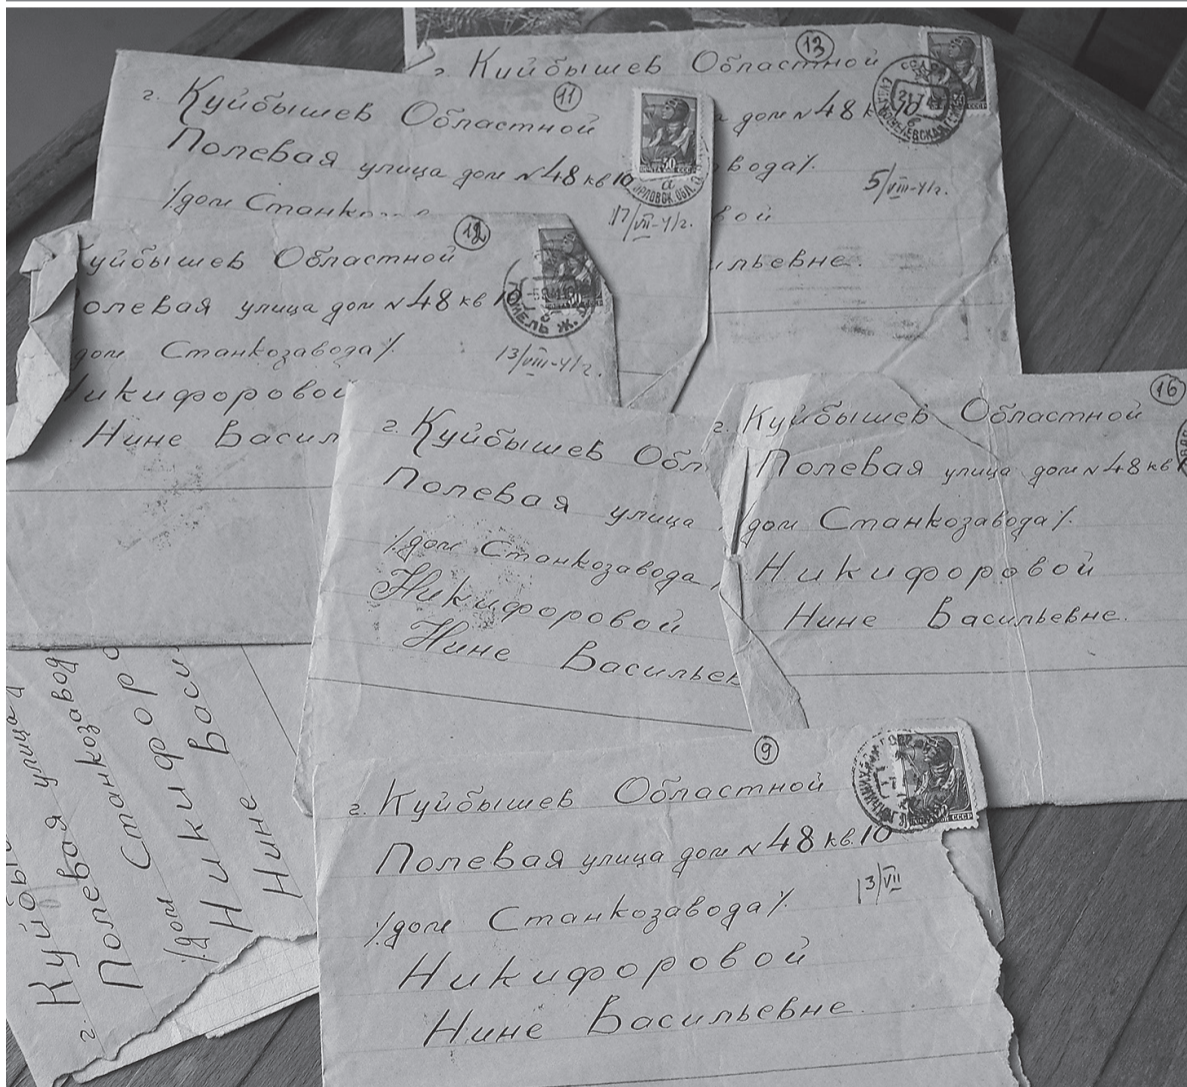 13
г. Куйбышев Областной
дом N 48 к
вода/.
5/VIII-41г.
вой
ильевне.
11
г. Куйбышев Областной
Полевая улица дом N 48 кв 10
/дом Станко
30
ПОЧТА СССР
17/VII-41г.
12
уйбышев Областной
олевая улица дом N 48 кв 10
дом Станкозавода/.
13/VIII-41г.
икифоровой
Нине Васил
г. Куйбышев Обл
Полевая улица
/дом Станкозавода
Никифоровой
Нине Васильев
16
г. Куйбышев Областной
Полевая улица дом N 48 кв 1
/дом Станкозавода/.
Никифоровой
Нине Васильевне.
г. Куйбы
Полевая улица
/дом Станкозавод
Никифоро
Нине Васи
9
г. Куйбышев Областной
Полевая улица дом N 48 кв. 10
/дом Станкозавода/.
13/VII
Никифоровой
Нине Васильевне.